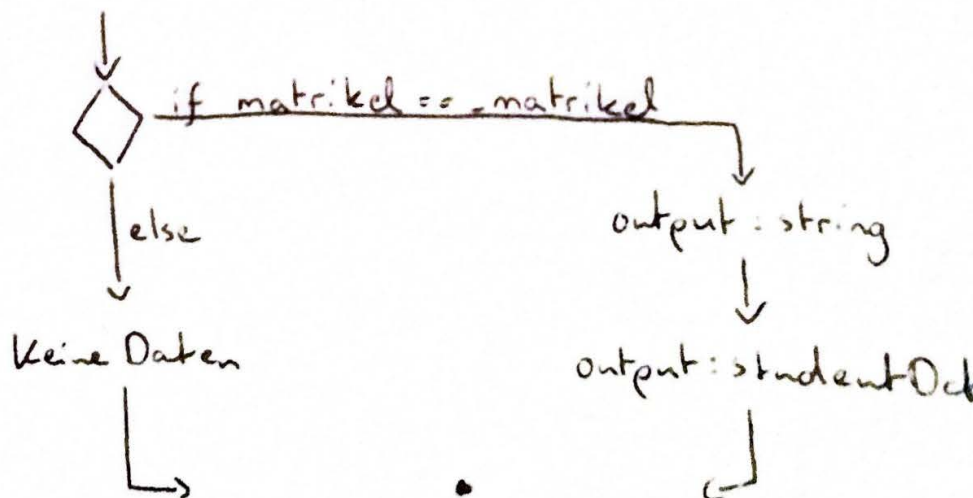 if matrikel == _matrikel
else
output : string
Keine Daten
output : studentDat